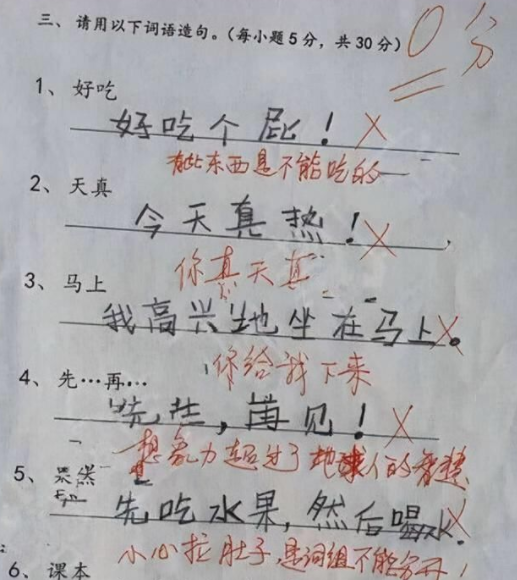 三、请用以下词语造句。（每小题5分，共30分）
0分
1、好吃
好吃个屁！
有些东西是不能吃的
2、天真
今天真热！
你真天真
3、马上
我高兴地坐在马上。
你给我下来
4、先…再…
先生，再见！
想象力超过了地球人的智慧
5、果然
先吃水果，然后喝水。
小心拉肚子，是词组不能分开！
6、课本